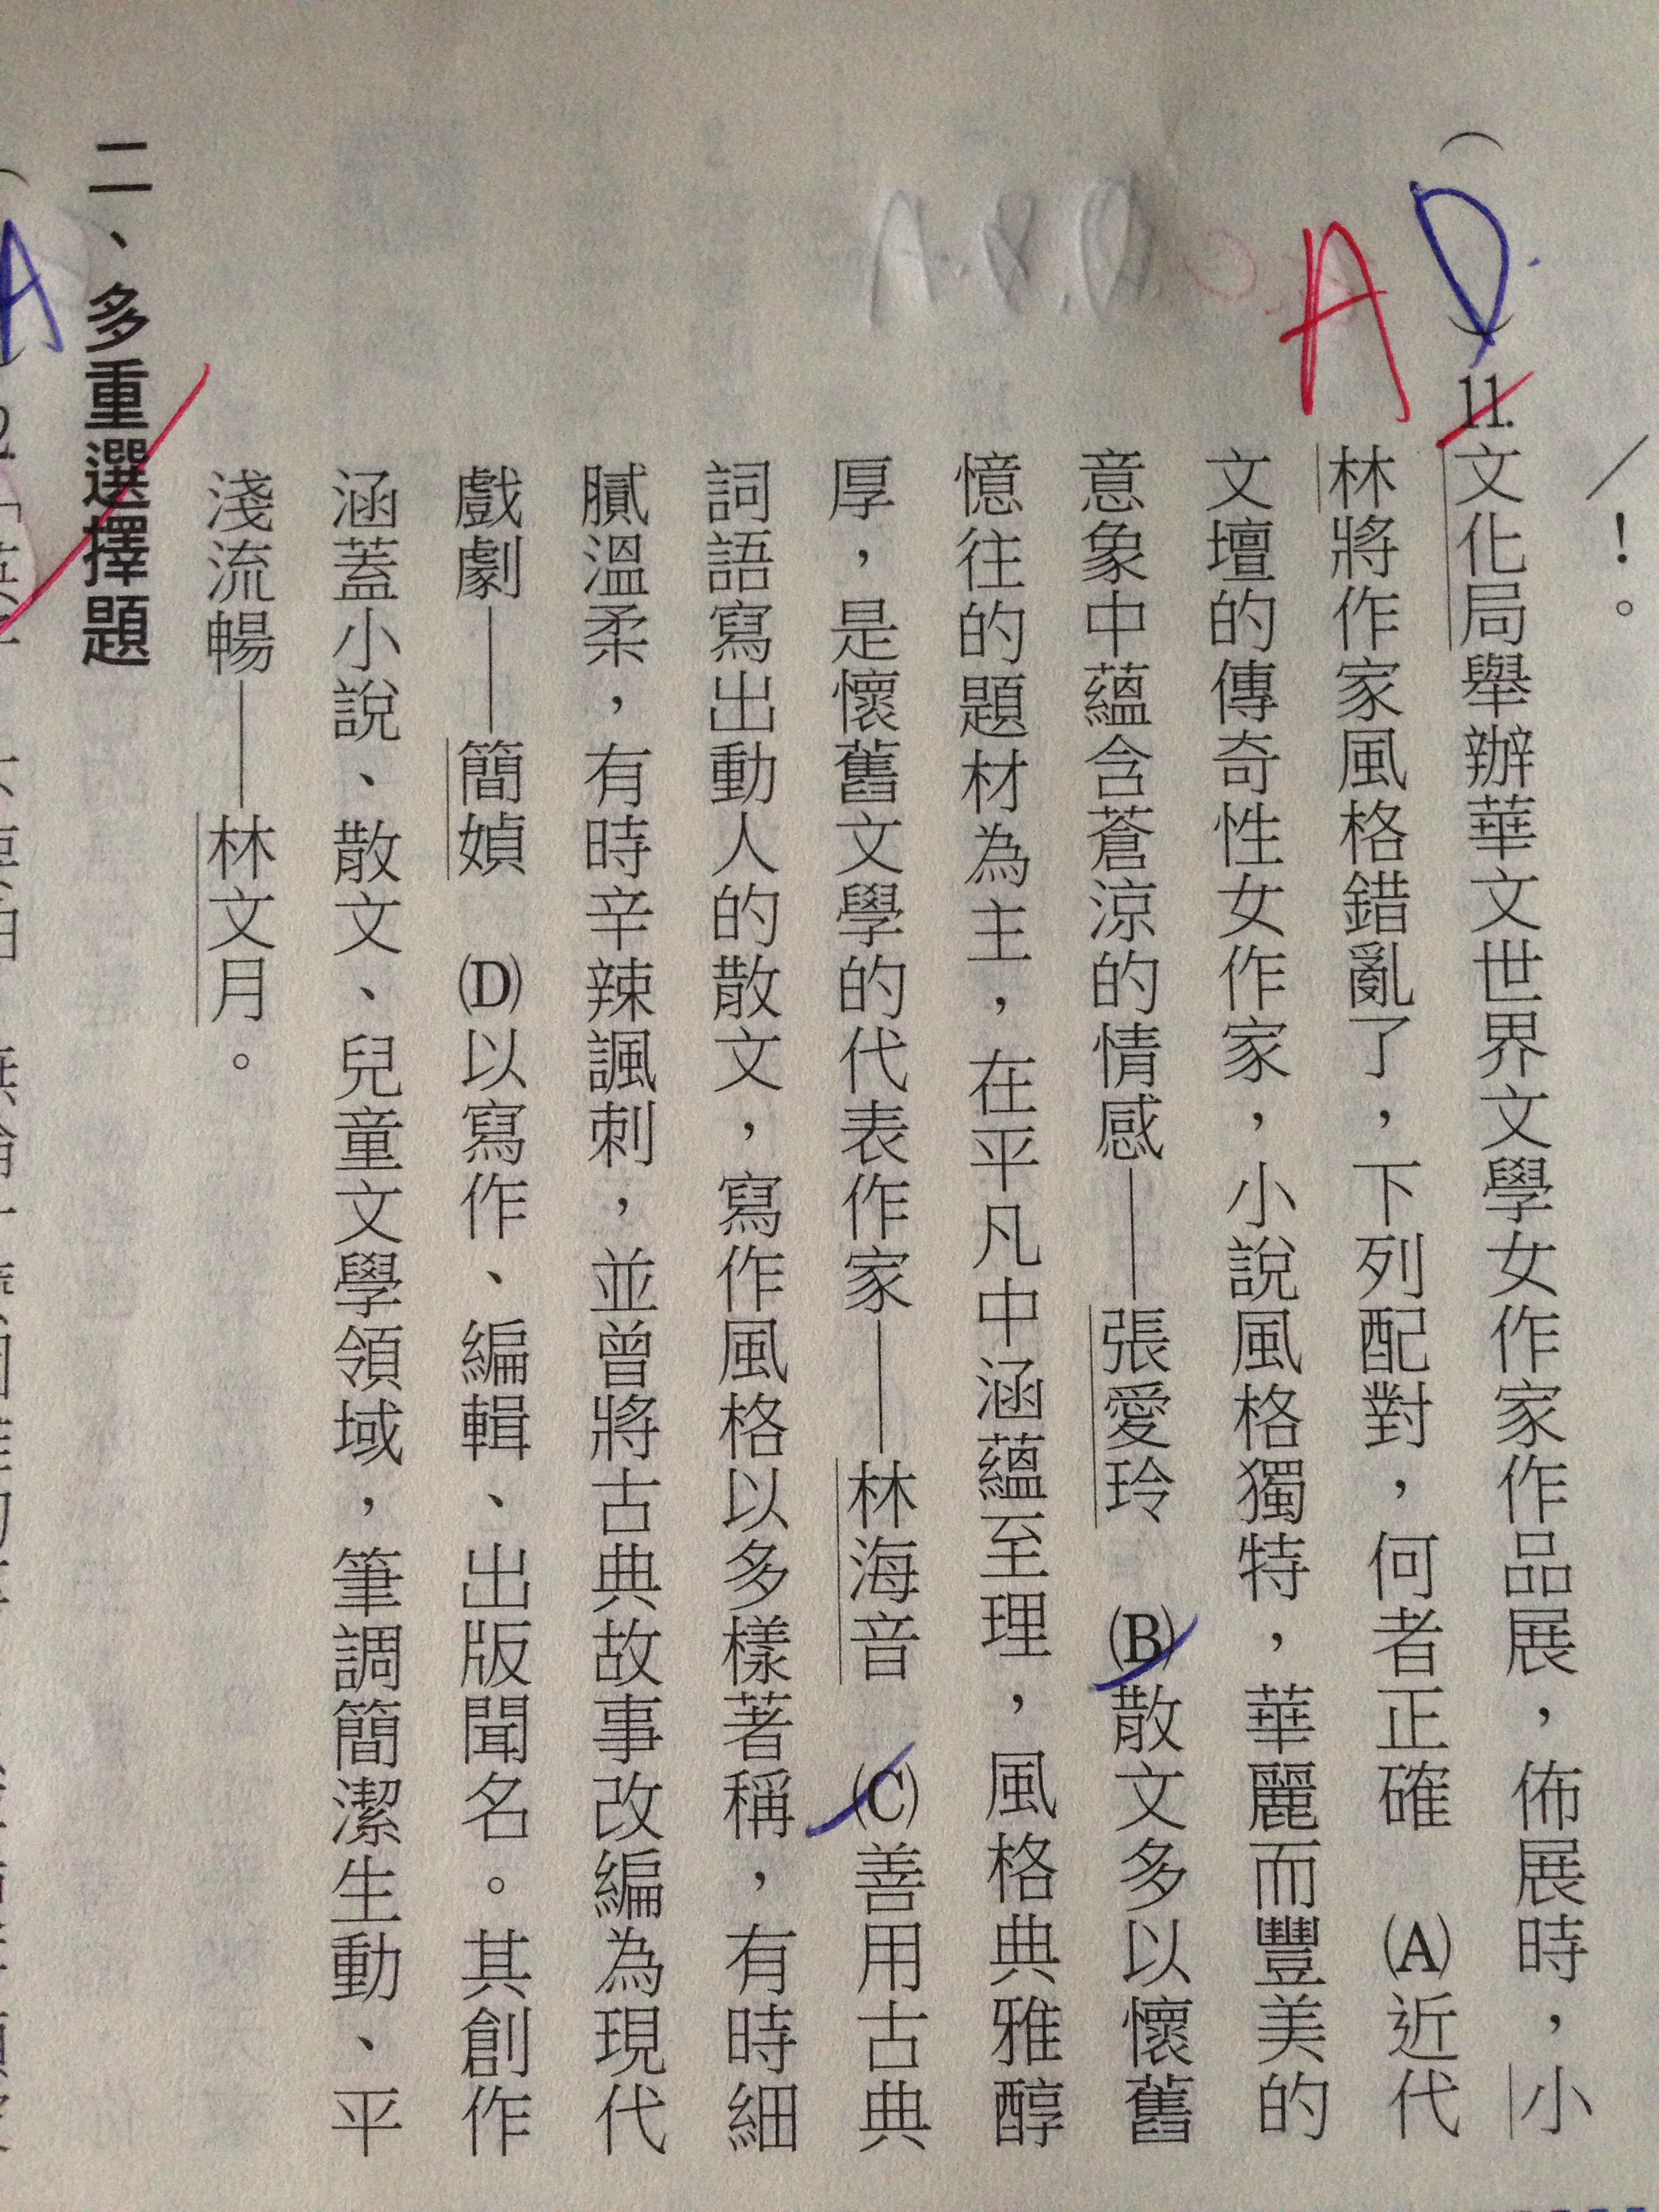 ╱！。
（D）11.文化局舉辦華文世界文學女作家作品展，佈展時，小
A
林將作家風格錯亂了，下列配對，何者正確　(A)近代
文壇的傳奇性女作家，小說風格獨特，華麗而豐美的
意象中蘊含蒼涼的情感——張愛玲　(B)散文多以懷舊
憶往的題材為主，在平凡中涵蘊至理，風格典雅醇
厚，是懷舊文學的代表作家——林海音　(C)善用古典
詞語寫出動人的散文，寫作風格以多樣著稱，有時細
膩溫柔，有時辛辣諷刺，並曾將古典故事改編為現代
戲劇——簡媜　(D)以寫作、編輯、出版聞名。其創作
涵蓋小說、散文、兒童文學領域，筆調簡潔生動、平
淺流暢——林文月。
二、多重選擇題
（A）2.